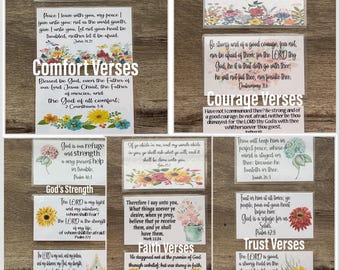 Peace I leave with you, my peace I
give unto you: not as the world giveth,
give I unto you. Let not your heart be
troubled, neither let it be afraid.
John 14:27
Comfort Verses
Blessed be God, even the Father of
our Lord Jesus Christ, the Father
of mercies, and
the God of all comfort;
2 Corinthians 1:3
Be strong and of a good courage, fear not,
nor be afraid of them: for the LORD thy
God, he it is that doth go with thee;
he will not fail thee, nor forsake thee.
Deuteronomy 31:6
Courage Verses
Have not I commanded thee? Be strong and of
a good courage; be not afraid, neither be thou
dismayed: for the LORD thy God is with thee
whithersoever thou goest.
God is our refuge
and strength,
a very present help
in trouble.
Psalm 46:1
God's Strength
The LORD is my light
and my salvation;
whom shall I fear?
the LORD is the strength
of my life; of whom
shall I be afraid?
Psalm 27:1
The LORD is my
If ye abide in me, and my words abide in
you, ye shall ask what ye will, and it
shall be done unto you.
John 15:7
Therefore I say unto you,
What things soever ye
desire, when ye pray,
believe that ye receive
them, and ye shall
have them.
Mark 11:24
Faith Verses
He staggered not at the promise of God
through unbelief; but was strong in faith,
Thou wilt keep him in
perfect peace, whose
mind is stayed on
thee: because he
trusteth in thee.
Isaiah 26:3
Trust in him at all times; ye
people, pour out your
heart before him:
God is a refuge for
us. Selah.
Psalm 62:8
Trust Verses
The LORD is good, a
strong hold in the